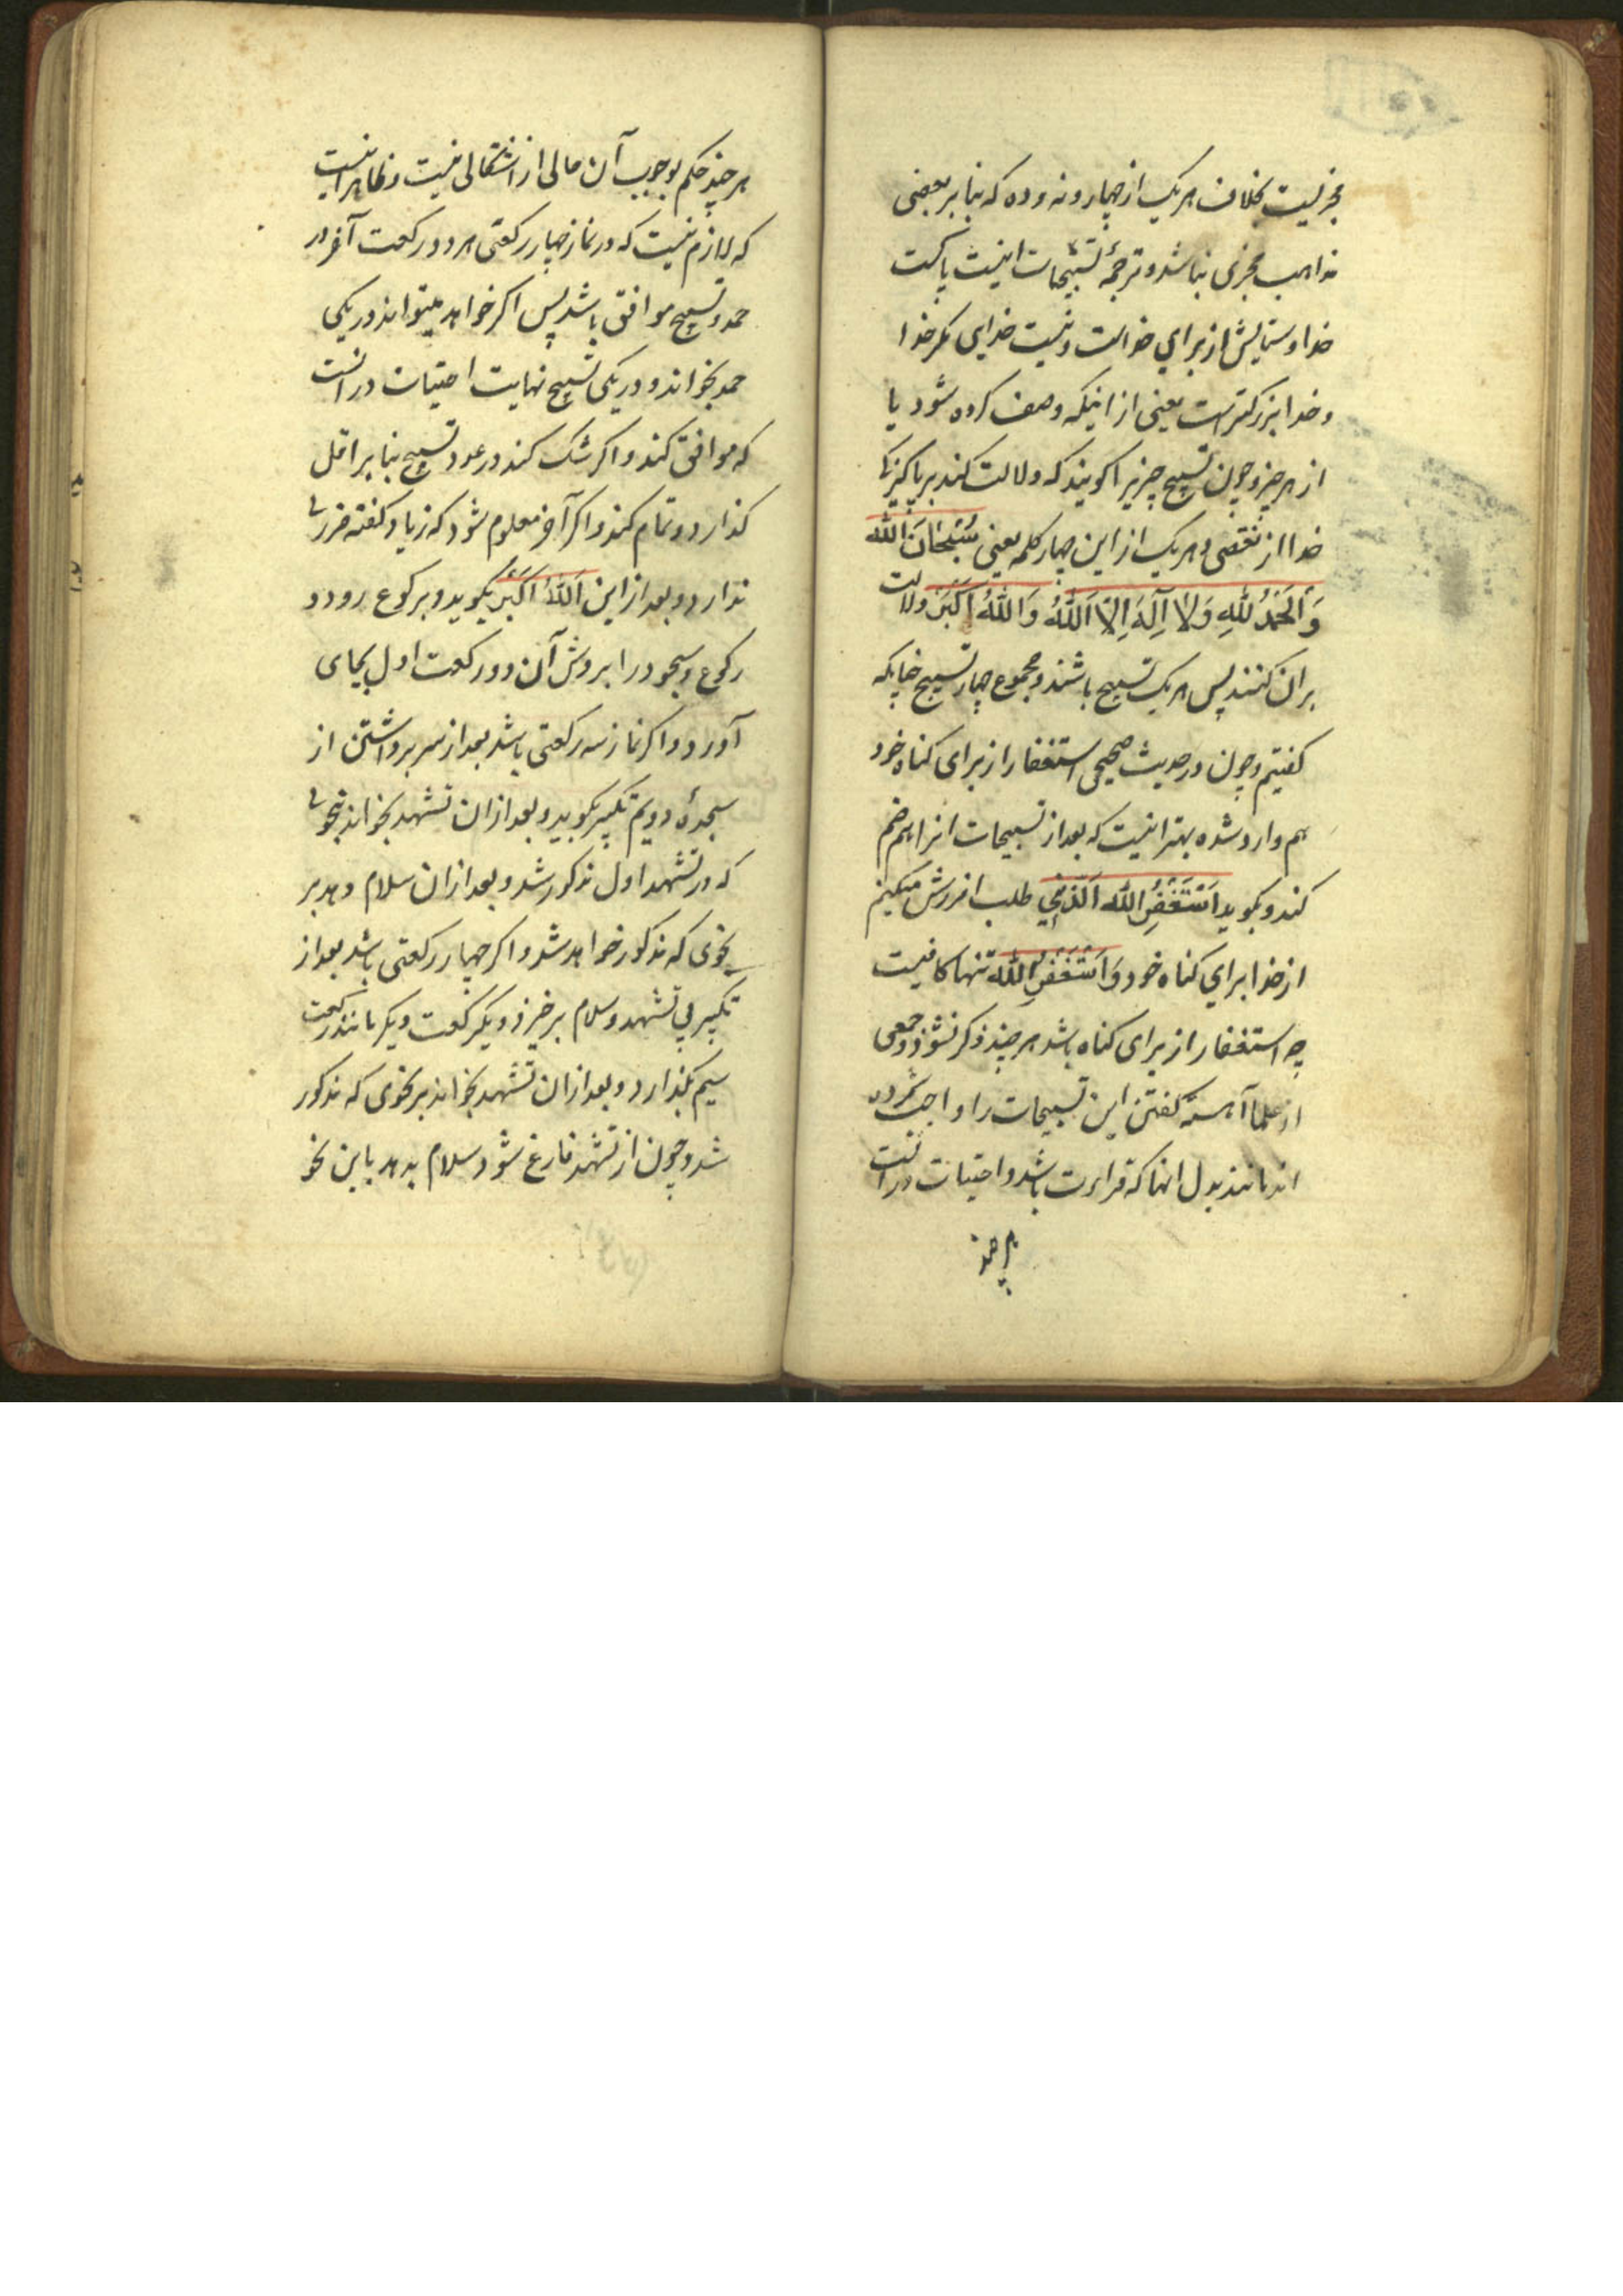 مجزیست بخلاف هر یک از چهار و نه و ده که بنا بر بعضی
مذاهب مجزی نباشد و ترجمهٔ تسبیحات اینست پاکست
خدا و ستایش از برای خداست و نیست خدایی مکر خدا
و خدا بزرکترست یعنی از اینکه وصف کرده شود یا
از هر چیز و چون تسبیح چیزیرا کویند که دلالت کند بر پاکیزکی
خدا از نقصی و هر یک از این چهار کلمه یعنی سُبْحَانَ اللّه
وَالْحَمْدُ لِلّهِ وَلَا اِلَهَ اِلَّا اللّهُ وَاللّهُ اَکْبَرْ دلالت
بر ان کنند پس هر یک تسبیح باشند و مجموع چهار تسبیح چنانکه
کفتیم و چون در حدیث صحیحی استغفار از برای کناه خود
هم وارد شده بهتر اینست که بعد از تسبیحات انرا هم ضم
کند و بکوید اَسْتَغْفِرُ اللّهَ لِذَنْبِی طلب امرزش میکنم
از خدا برای کناه خود وَاَسْتَغْفِرُ اللّهَ تنها کافیست
چه استغفار از برای کناه باشد هر چند ذکر نشود و جمعی
از علما آهسته کفتن این تسبیحات را واجب شمرده
اند مانند بدل انها که قراءت باشد و احتیاط در انست
هر چند
هر چند حکم بوجوب آن خالی از اشکالی نیست و ظاهر اینست
که لازم نیست که در نماز چهار رکعتی هر دو رکعت آخر در
حمد و تسبیح موافق باشد پس اکر خواهد میتواند در یکی
حمد بخواند و در یکی تسبیح نهایت احتیاط در انست
که موافق کند و اکر شک کند در عدد تسبیح بنا بر اقل
کذارد و تمام کند و اکر آخر معلوم شود که زیاد کفته ضرری
ندارد و بعد از این اَللّهُ اَکْبَرْ بکوید و برکوع رود و
رکوع و سجود را بروش آن دو رکعت اول بجای
آورد و اکر نماز سه رکعتی باشد بعد از سر برداشتن از
سجدهٔ دویم تکبیر بکوید و بعد از ان تشهد بخواند بنحوی
که در تشهد اول مذکور شد و بعد از ان سلام دهد بر
نحوی که مذکور خواهد شد و اکر چهار رکعتی باشد بعد از
تکبیر بی تشهد و سلام برخیزد و یکرکعت دیکر مانند رکعت
سیم بکذارد و بعد از ان تشهد بخواند بر نحوی که مذکور
شد و چون از تشهد فارغ شود سلام بدهد باین نحو